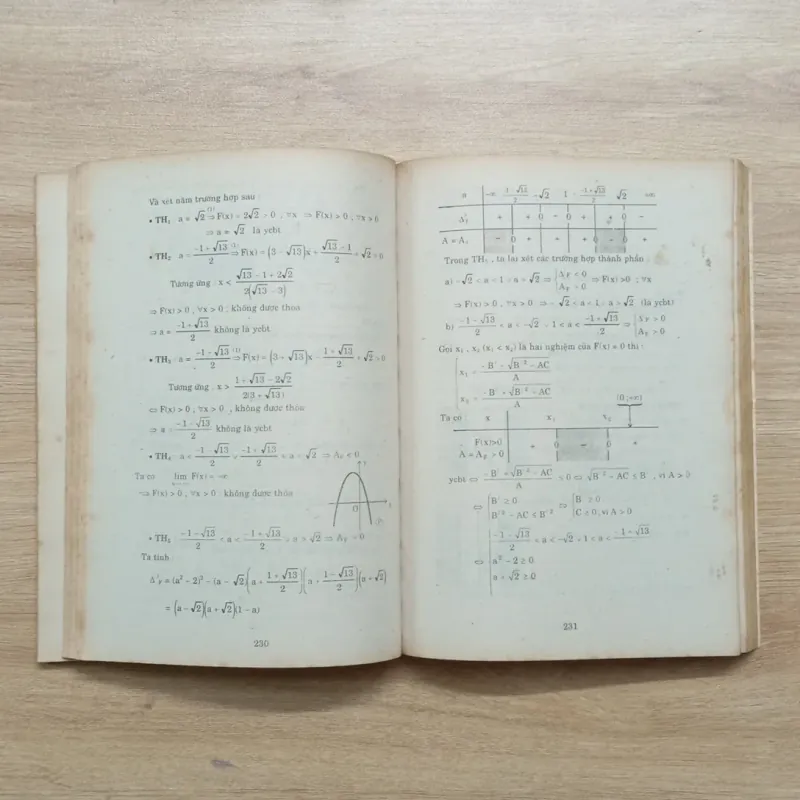 Và xét năm trường hợp sau :
• TH₁ a = √2 ⇒ F(x) = 2√2 > 0 , ∀x ⇒ F(x) > 0 , ∀x > 0
⇒ a = √2 là ycbt
• TH₂ a = (-1+√13)/2 ⇒ F(x) = (3 - √13)x + (√13-1)/2 + √2 > 0
Tương ứng : x < (√13 - 1 + 2√2)/(2(√13 - 3))
⇒ F(x) > 0 , ∀x > 0 : không được thỏa
⇒ a = (-1+√13)/2 không là ycbt
• TH₃ a = (-1-√13)/2 ⇒ F(x) = (3 + √13)x - (1+√13)/2 + √2 > 0
Tương ứng : x > (1+√13-2√2)/(2(3+√13))
⇔ F(x) > 0 , ∀x > 0 , không được thỏa
⇒ a = (-1-√13)/2 không là ycbt
• TH₄ a < (-1-√13)/2 (-1+√13)/2 < a < √2 ⇒ A_F < 0
Ta có lim F(x) = -∞
⇒ F(x) > 0 , ∀x > 0 : không được thỏa
y
O
x
(P)
• TH₅ (-1-√13)/2 < a < (-1+√13)/2 a > √2 ⇒ A_F > 0
Ta tính :
Δ'_F = (a²-2)² - (a-√2)(a + (1+√13)/2)(a + (1-√13)/2)(a+√2)
= (a-√2)(a+√2)(1-a)
230
a -∞ (-1-√13)/2 -√2 1 (-1+√13)/2 √2 +∞
Δ'_F + + 0 - 0 + + 0 -
A = A_F - 0 + + + 0 - 0 +
Trong TH₅ , ta lại xét các trường hợp thành phần :
a) -√2 < a < 1 a > √2 ⇒ {Δ'_F < 0 A_F > 0 ⇒ F(x) > 0 ; ∀x
⇒ F(x) > 0 , ∀x > 0 ⇒ -√2 < a < 1 a > √2 (là ycbt)
b) (-1-√13)/2 < a < -√2 1 < a < (-1+√13)/2 ⇒ {Δ'_F > 0 A_F > 0
Gọi x₁ , x₂ (x₁ < x₂) là hai nghiệm của F(x) = 0 thì :
x₁ = (-B' - √(B'² - AC))/A
x₂ = (-B' + √(B'² - AC))/A
(0 ;+∞)
Ta có : x x₁ x₂
F(x)>0 + 0 - 0 +
A = A_F > 0
ycbt ⇔ (-B' + √(B'² - AC))/A ≤ 0 ⇔ √(B'² - AC) ≤ B' , vì A > 0
⇔ {B' ≥ 0 B'² - AC ≤ B'² ⇔ {B' ≥ 0 C ≥ 0, vì A > 0
⇔ {(-1-√13)/2 < a < -√2 1 < a < (-1+√13)/2
a² - 2 ≥ 0
a + √2 ≥ 0
231